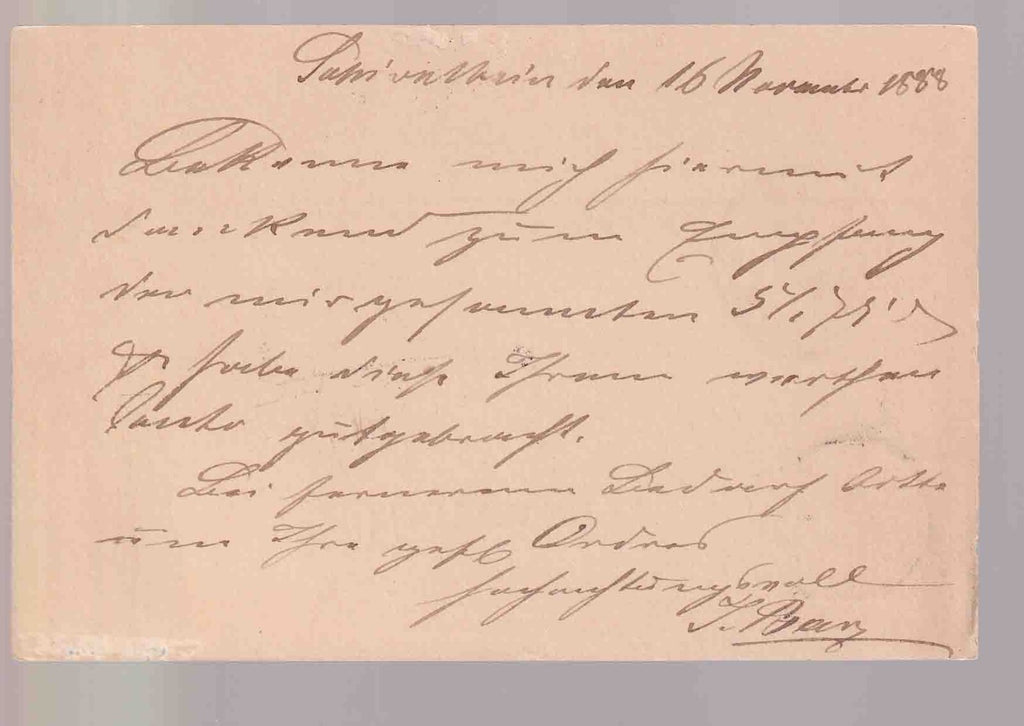 Schivelbein den 16 November 1888
Bekenne mich hiermit
dankend zum Empfang
der mir gesannten 51,75
& habe diese Ihrem werthen
Conto gutgebracht.
Bei fernerem Bedarf bitte
um Ihre gefl Ordres
Hochachtungsvoll